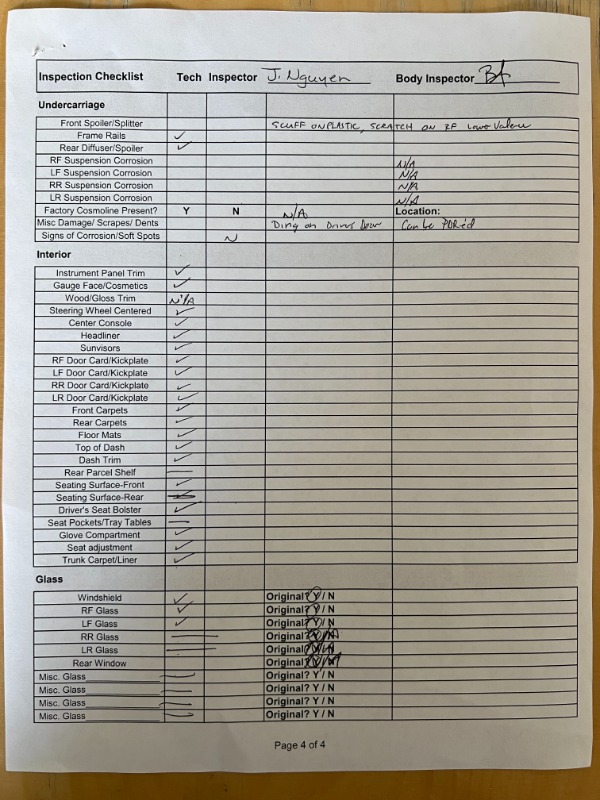 Inspection Checklist Tech Inspector J. Nguyen Body Inspector
Undercarriage
Front Spoiler/Splitter SCUFF ON PLASTIC, SCRATCH ON RF Lower Valence
Frame Rails ✓
Rear Diffuser/Spoiler ✓
RF Suspension Corrosion N/A
LF Suspension Corrosion N/A
RR Suspension Corrosion N/A
LR Suspension Corrosion N/A
Factory Cosmoline Present? Y N N/A Location:
Misc Damage/ Scrapes/ Dents Ding on Drivers Door Can be PDR'ed
Signs of Corrosion/Soft Spots N
Interior
Instrument Panel Trim ✓
Gauge Face/Cosmetics ✓
Wood/Gloss Trim N/A
Steering Wheel Centered ✓
Center Console ✓
Headliner ✓
Sunvisors ✓
RF Door Card/Kickplate ✓
LF Door Card/Kickplate ✓
RR Door Card/Kickplate ✓
LR Door Card/Kickplate ✓
Front Carpets ✓
Rear Carpets ✓
Floor Mats ✓
Top of Dash ✓
Dash Trim ✓
Rear Parcel Shelf —
Seating Surface-Front ✓
Seating Surface-Rear
Driver's Seat Bolster ✓
Seat Pockets/Tray Tables —
Glove Compartment ✓
Seat adjustment ✓
Trunk Carpet/Liner ✓
Glass
Windshield ✓ Original? Y / N
RF Glass ✓ Original? Y / N
LF Glass ✓ Original? Y / N
RR Glass — Original? N/A
LR Glass — Original? N/A
Rear Window Original? N/A
Misc. Glass — Original? Y / N
Misc. Glass — Original? Y / N
Misc. Glass — Original? Y / N
Misc. Glass — Original? Y / N
Page 4 of 4